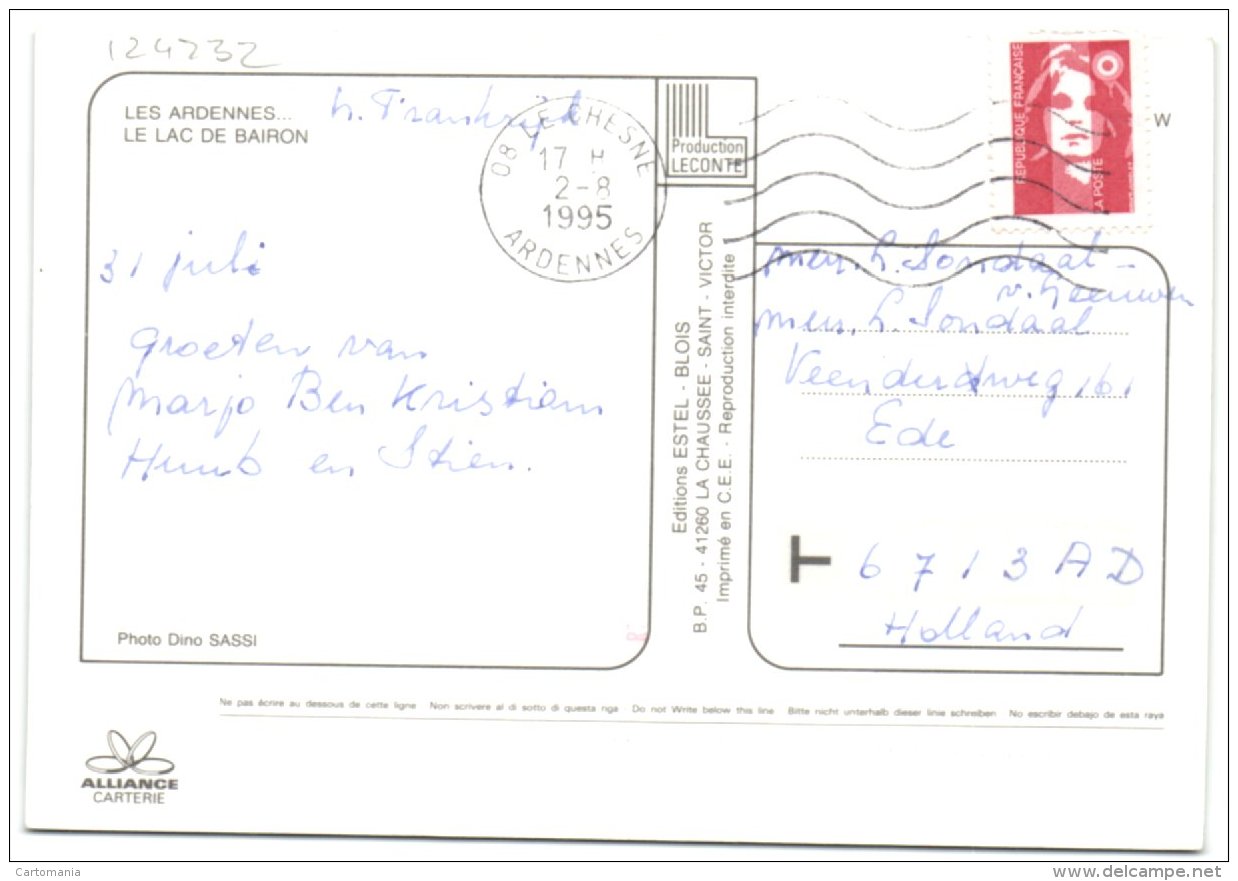 124232
LES ARDENNES...
LE LAC DE BAIRON
Frankrijk
08 LE CHESNE
17 H
2-8
1995
ARDENNES
Production
LECONTE
REPUBLIQUE FRANÇAISE
LA POSTE
W
31 juli
groeten van
Marjo Ben Kristien
Huub en Stien.
Photo Dino SASSI
Editions ESTEL - BLOIS
B.P. 45 - 41260 LA CHAUSSEE - SAINT - VICTOR
Imprimé en C.E.E. - Reproduction interdite
L. Sondaal -
v. Leeuwen
L. Sondaal
161
Ede
T 6713 AD
Holland
Ne pas écrire au dessous de cette ligne Non scrivere al di sotto di questa riga Do not Write below this line Bitte nicht unterhalb dieser linie schreiben No escribir debajo de esta raya
ALLIANCE
CARTERIE
Cartomania
delcampe.net